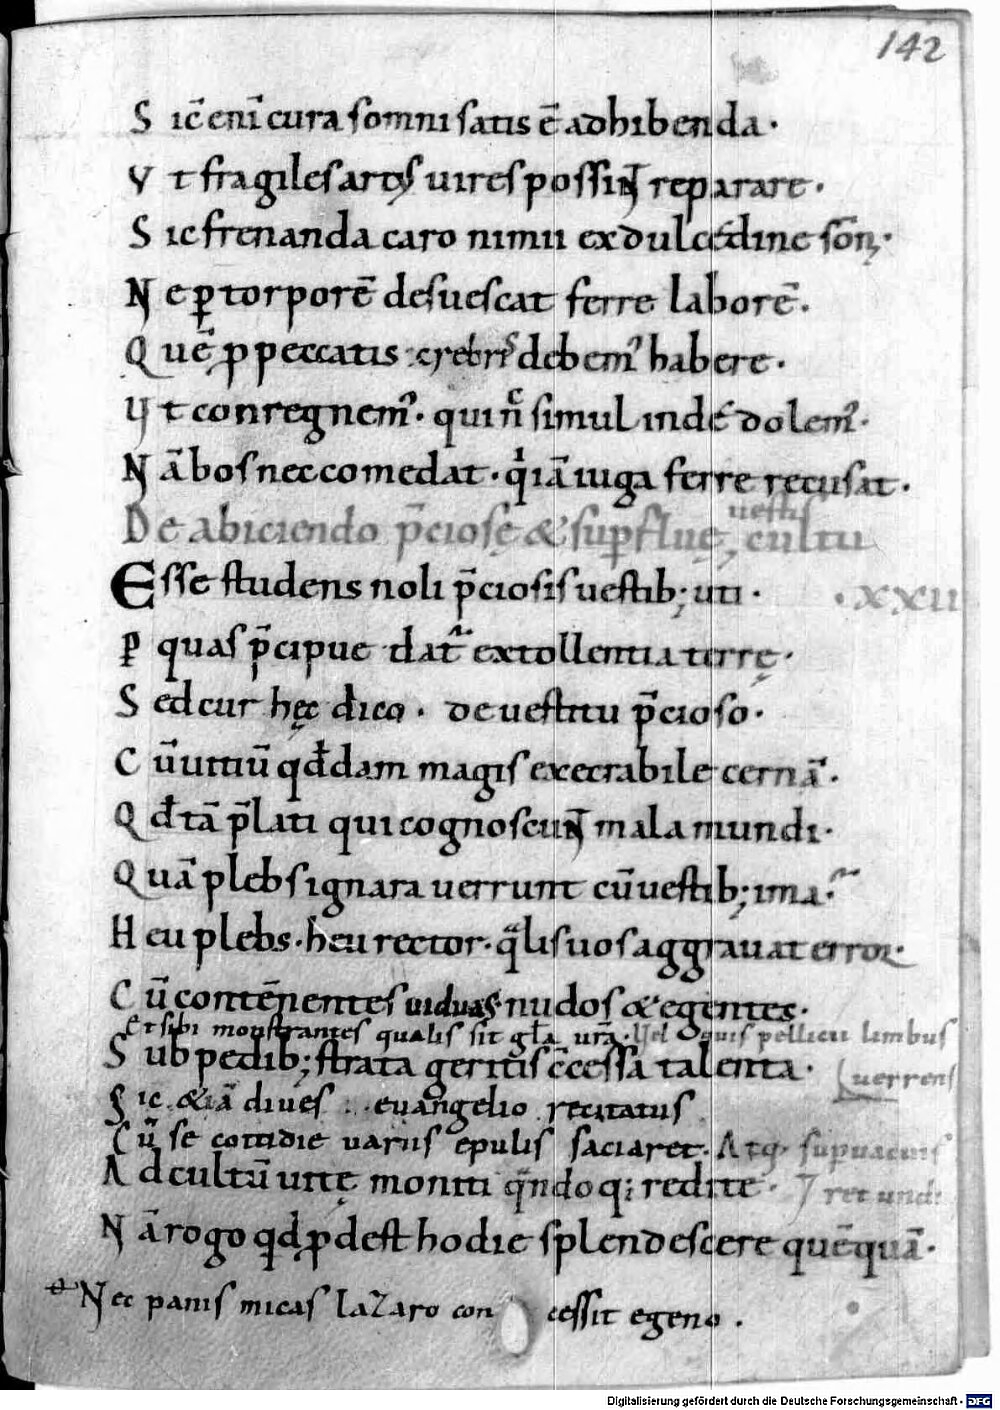 142
S ic̄ enī cura somni satis ē adhibenda·
V t fragiles artꝰ uires possiNT reparare·
S ic frenanda caro nimii ex dulcedine somꝫ·
N e ꝑ torporē desuescat ferre laborē·
Q uē ꝓ peccatis crebrꝰ debemꝰ habere·
U t conregnemꝰ· qui n̄ simul inde dolemꝰ·
N ā bos nec comedat· qͥ iā iuga ferre recusat·
De abiciendo p̄ciosę & suꝑfluę uestis cultu
Esse studens noli p̄ciosis uestib; uti· ·XXII
Ꝑ quas p̄cipue dat᷑ extollentia terrę·
S ed cur hęc dico· de uestitu p̄cioso·
C ū uitiū qđdam magis execrabile cernā·
Q đ tā p̄lati qui cognoscuNT mala mundi·
Q uā plebs ignara uerrunt cū uestib; ima·
H eu plebs· heu rector· qͣlis uos aggrauat error·
C ū contēnentes uiduas· nudos & egentes·
Et sibi monstrantes qualis sit gl̄a ur̄a· Vel quis pellicii limbus
S ub pedib; strata geritis c̄cessa talenta· uerrens
S ic &iā diues euangelio recitatus
C ū se cottidie variis epulis saciaret· Atq; suꝑuacuis
A d cultū uitę moniti qn̄doq; redite·
N ā rogo qđ ꝓdest hodie splendescere quēquā·
Nec panis micas lazaro con cessit egeno.
Digitalisierung gefördert durch die Deutsche Forschungsgemeinschaft - DFG